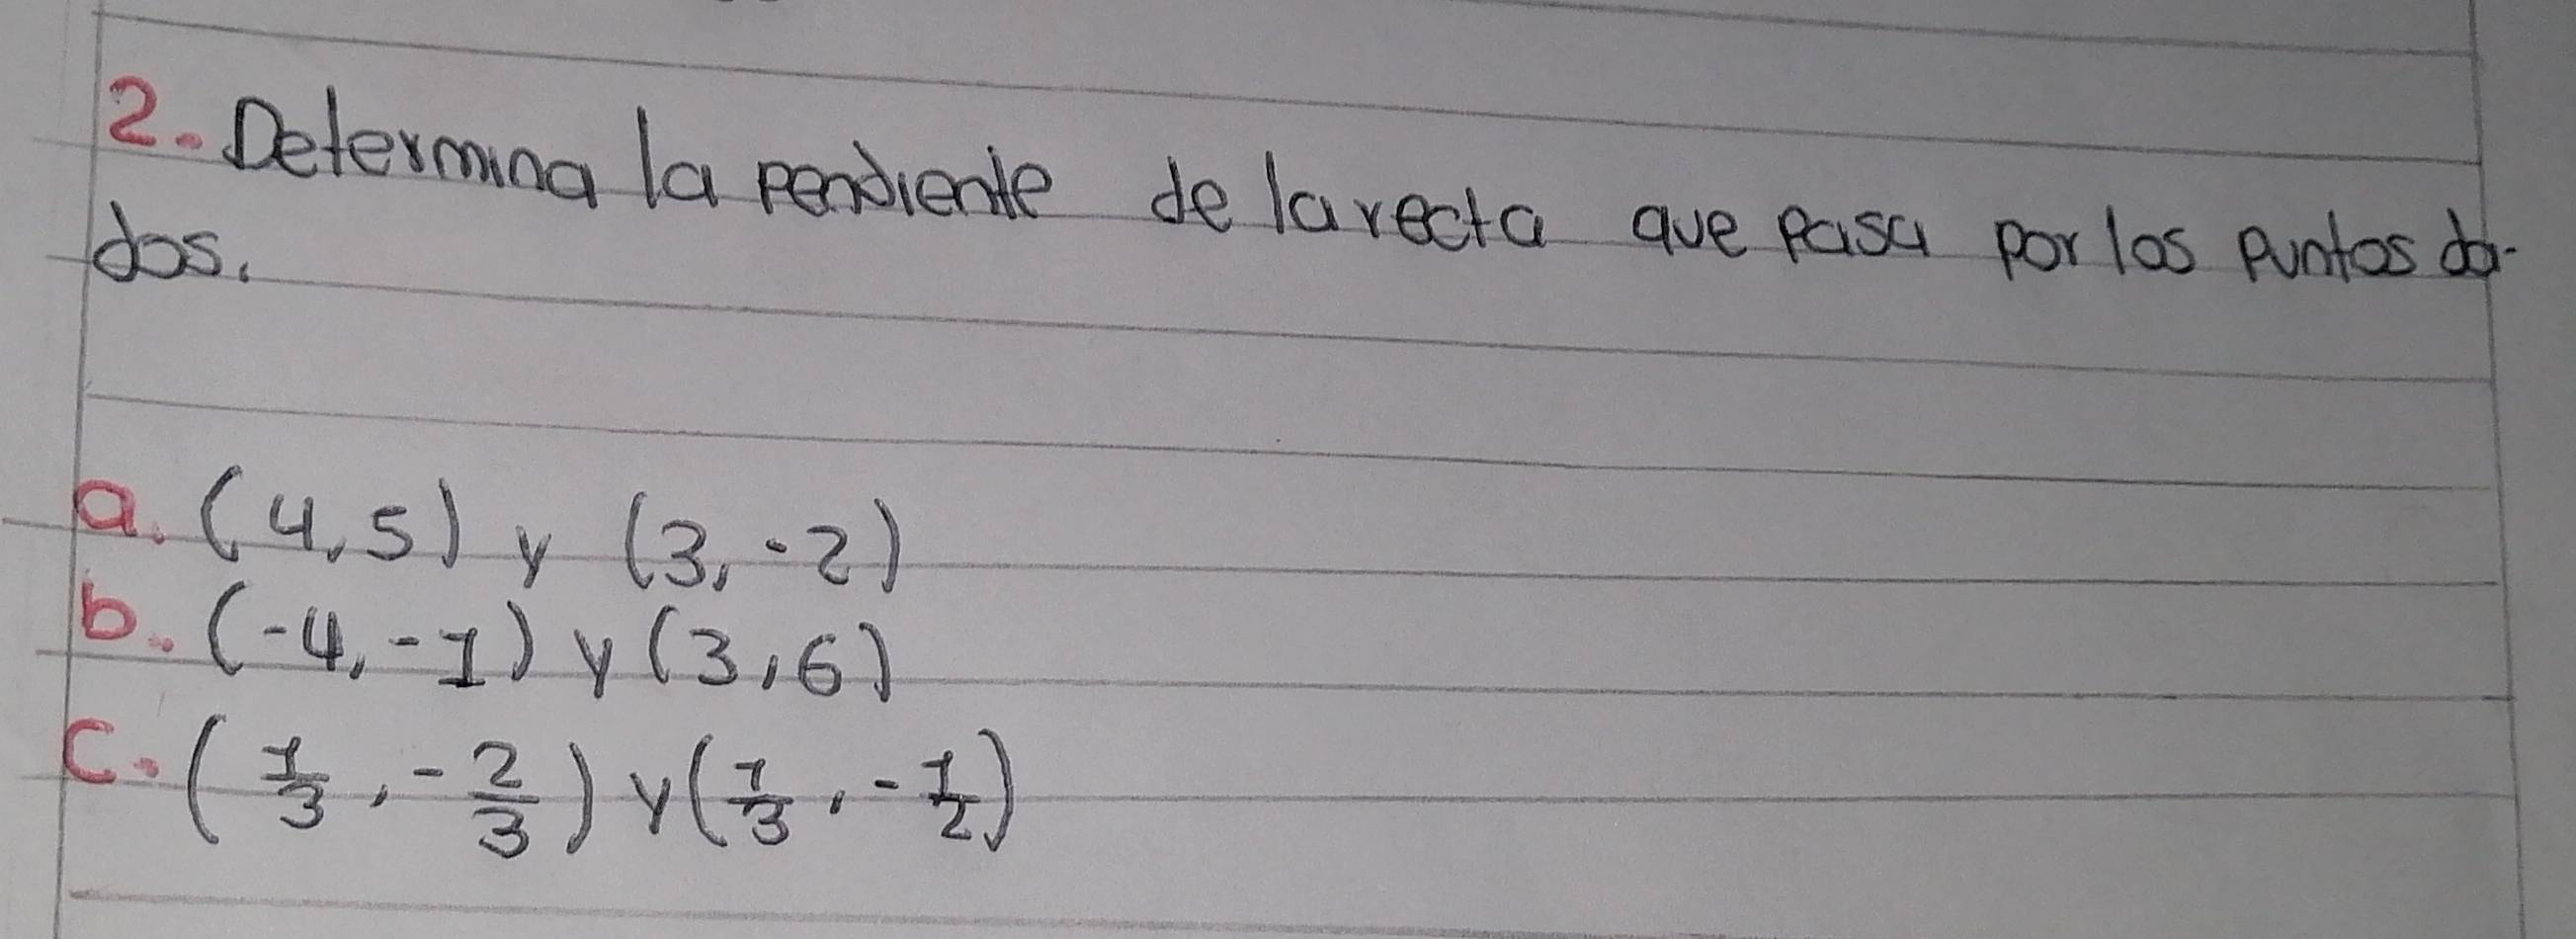 2. Determina la pendiente de la recta que pasa por los puntos da-
dos.
a. (4,5) y (3,-2)
b. (-4,-1) y (3,6)
c. (1/3, -2/3) y (1/3, -1/2)